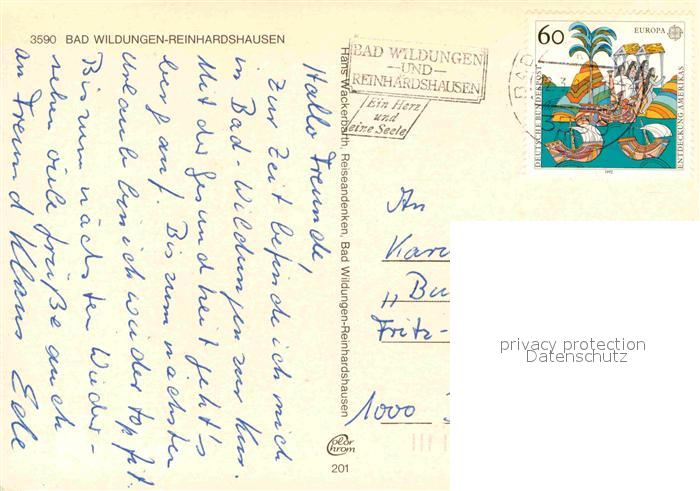 3590 BAD WILDUNGEN-REINHARDSHAUSEN
Hallo Freunde,
zur Zeit befinde ich mich
in Bad-Wildungen zur Kur.
Mit der Gesundheit geht's
berg auf. Bis zum nächsten
Urlaub bin ich wieder top fit.
Bis zum nächsten Wieder-
sehen viele Grüße auch
an Freund Klaus Ede
Hans Wackerbarth, Reiseandenken, Bad Wildungen-Reinhardshausen
BAD WILDUNGEN
-UND-
REINHARDSHAUSEN
Ein Herz
und
eine Seele
BAD
60
EUROPA
DEUTSCHE BUNDESPOST
ENTDECKUNG AMERIKAS
1992
An
„Bu
Fritz-
1000
Color
Chrom
201
privacy protection
Datenschutz